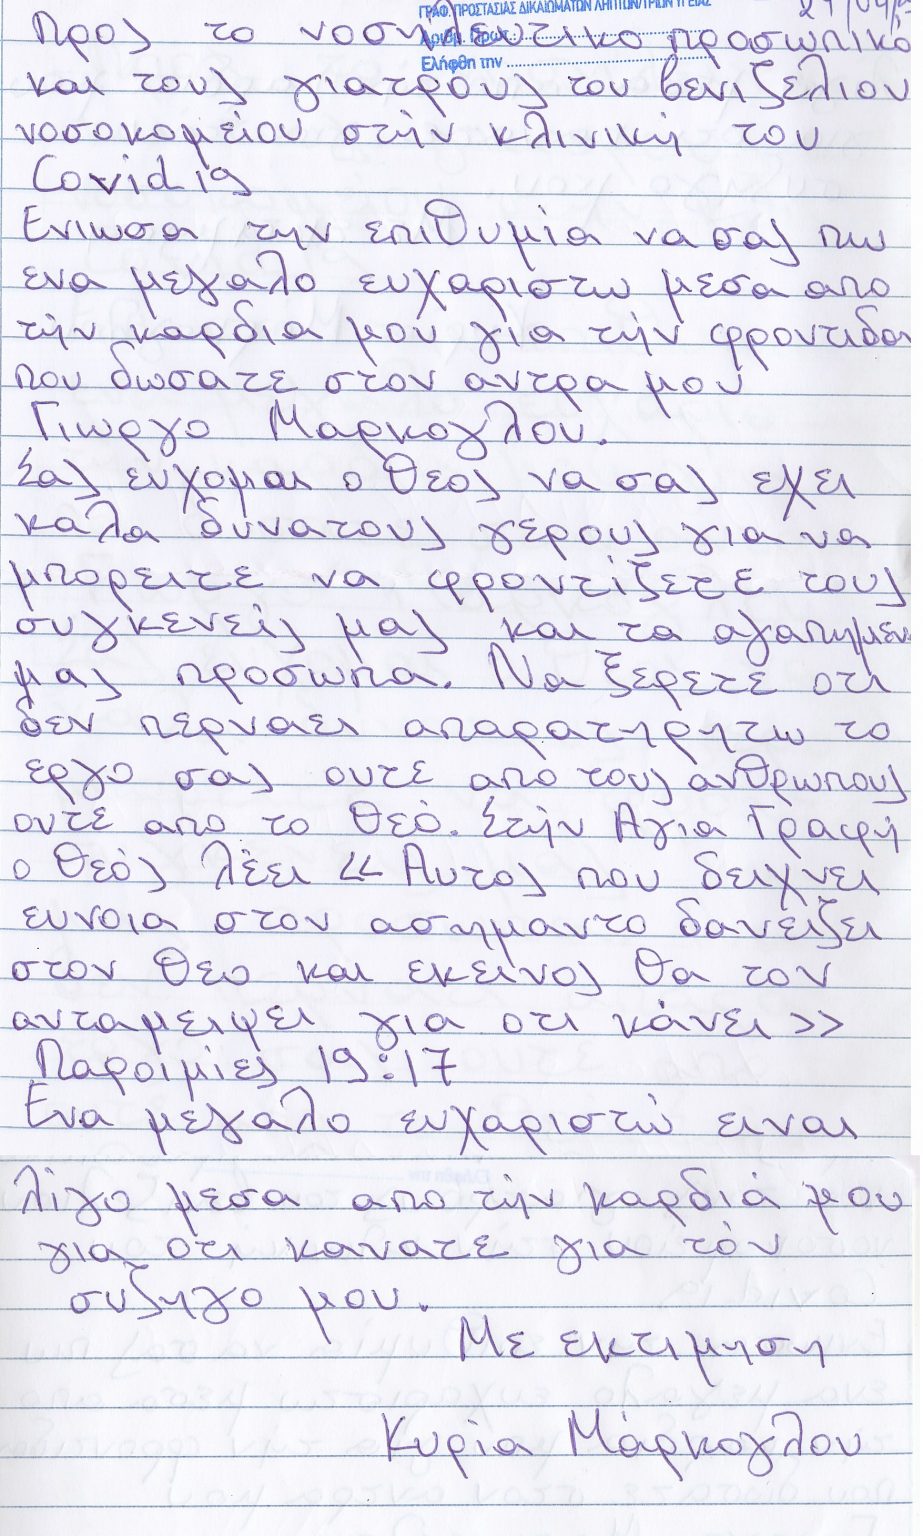 ΓΡΑΦ. ΠΡΟΣΤΑΣΙΑΣ ΔΙΚΑΙΩΜΑΤΩΝ ΛΗΠΤΩΝ/ΤΡΙΩΝ ΥΓΕΙΑΣ
Αριθμ. Πρωτ.
Ελήφθη την
Προς το νοσηλευτικο προσωπικο
και τους γιατρους του βενιζελιου
νοσοκομείου στήν κλινική του
Covid 19
Ενιωσα την επιθυμία να σας πω
ενα μεγαλο ευχαριστω μεσα απο
τήν καρδια μου για τήν φροντιδα
που δωσατε στον αντρα μου
Γιωργο Μαρκογλου.
Σας ευχομαι ο Θεος να σας εχει
καλα δυνατους γερους για να
μπορειτε να φροντίζετε τους
συγκενείς μας και τα αγαπημεν
μας προσωπα. Να ξερετε οτι
δεν περναει απαρατηρητω το
εργο σας ουτε απο τους ανθρωπους
ουτε απο το Θεό. Στήν Αγια Γραφή
ο Θεός λέει << Αυτος που δειχνει
ευνοια στον ασημαντο δανείζει
στον Θεο και εκείνος θα τον
ανταμειψει για οτι κάνει >>
Παροιμίες 19:17
Ενα μεγαλο ευχαριστώ ειναι
λίγο μεσα απο τήν καρδιά μου
για οτι κανατε για τόν
συζηγο μου.
Με εκτιμηση
Κυρία Μάρκογλου